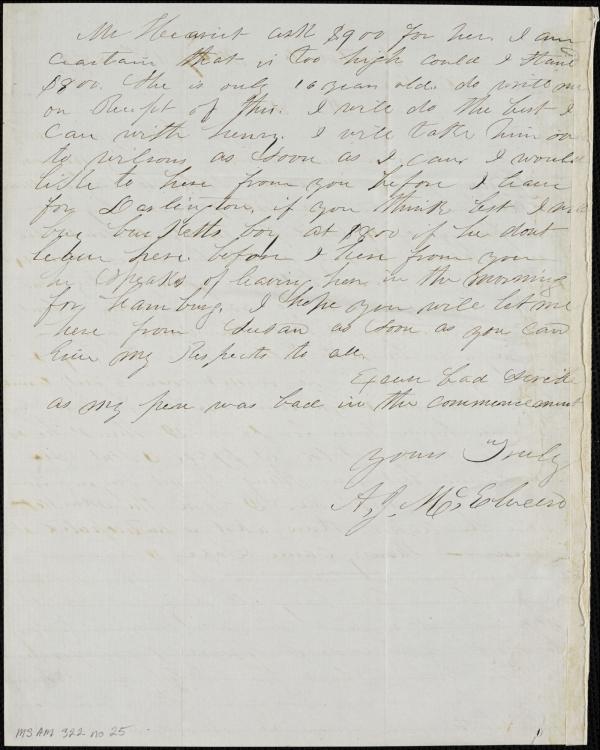 Mr Heariot ask $900 for her. I am
ceartain that is too high could I stand
$800. She is only 16 years old. do write me
on Receipt of this. I will do the best I
can with henry. I will take him on
to wilsons as soon as I can I would
like to here from you before I leave
for Darlington, if you think best I will
give bucketts boy at $800 if he dont
leave here before I here from you
he speaks of leaving here in the morning
for hamburg. I hope you will let me
here from Susan as soon as you can
Give my Respects to all.
Excuse bad scrible
as my pene was bad in the commencement
Yours Truly
A. J. McElveen
MS AM 322 no 25